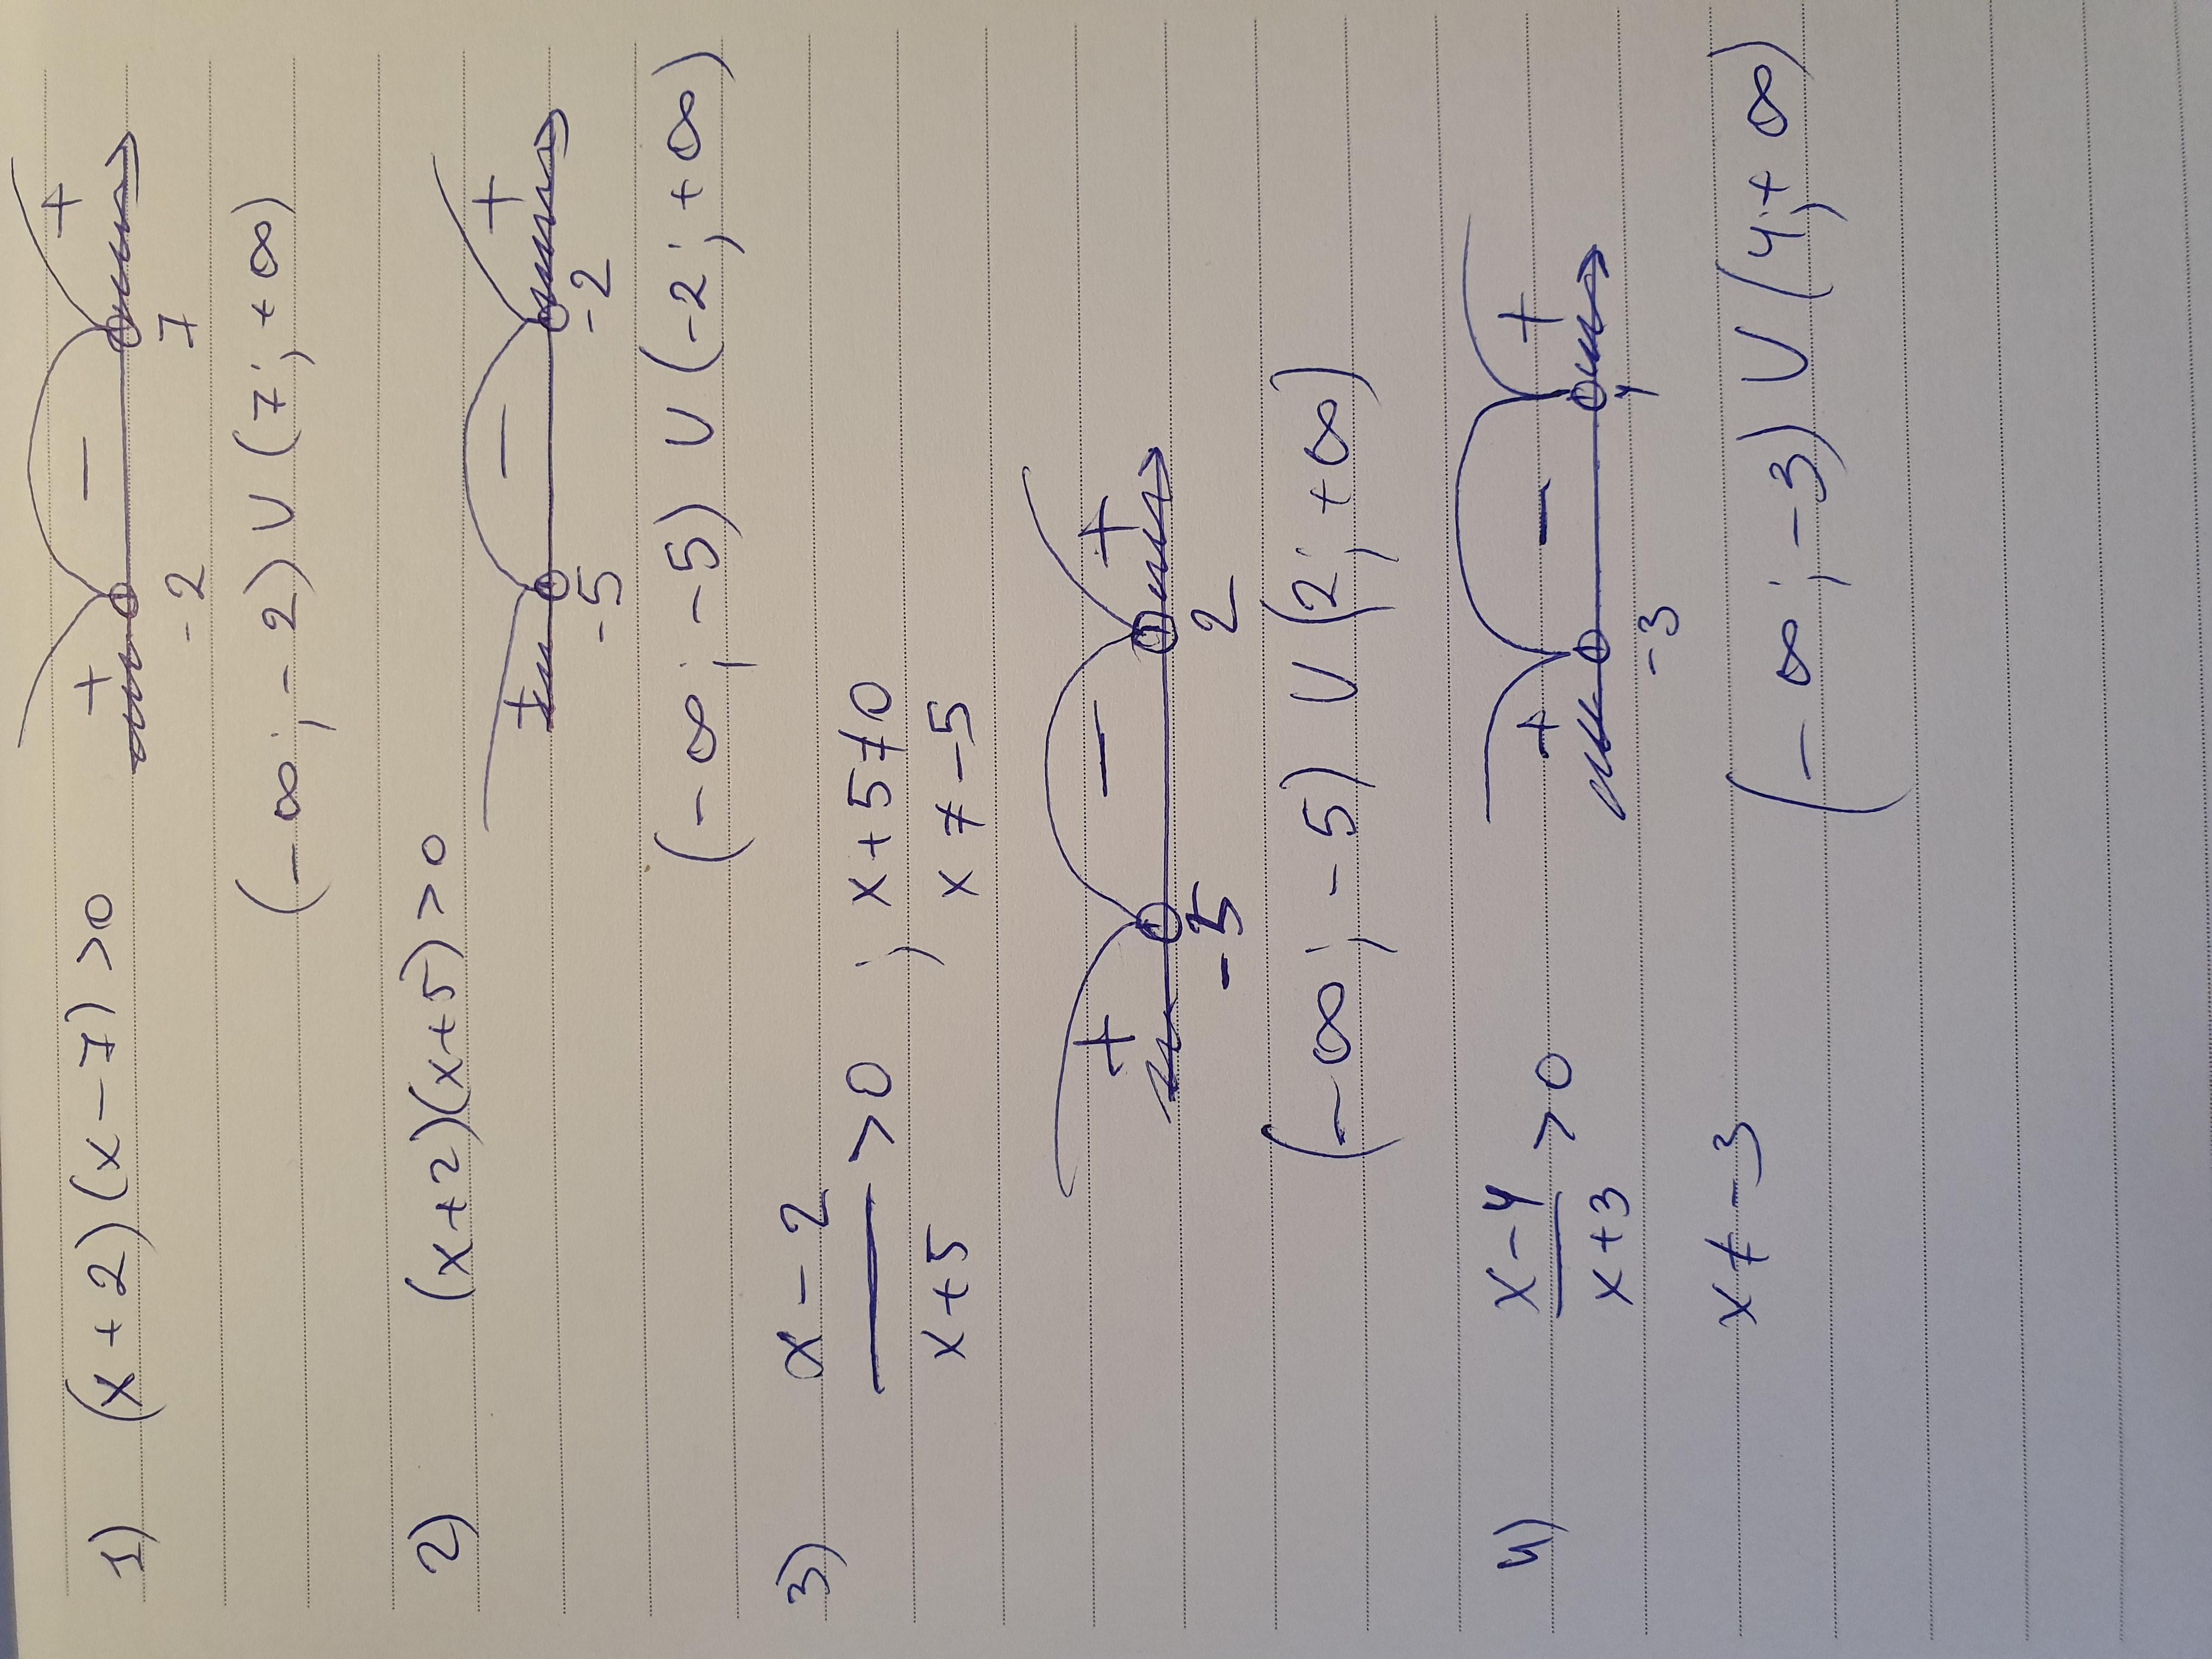 1) (x+2)(x-7)>0
+ - +
-2 7
(-∞;-2)∪(7;+∞)
2) (x+2)(x+5)>0
+ - +
-5 -2
(-∞;-5)∪(-2;+∞)
3) x-2
x+5 >0 ; x+5≠0
x≠-5
+ - +
-5 2
(-∞;-5)∪(2;+∞)
4) x-4
x+3 >0
+ - +
-3 4
x≠-3
(-∞;-3)∪(4;+∞)